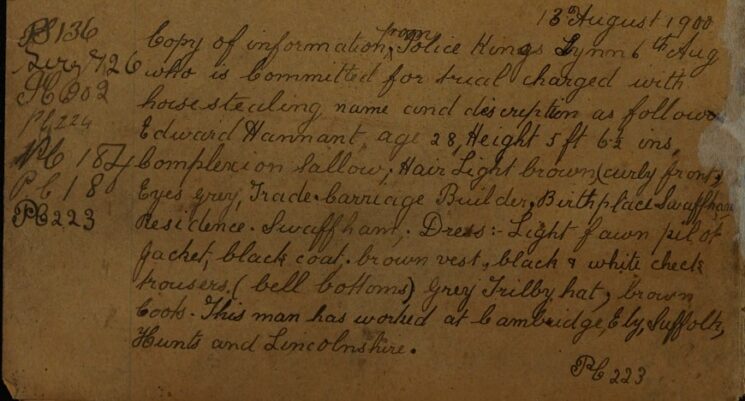 13th August 1900
PS 136
Serg 726
PC 902
PC 224
PC 184
PC 18
PC 223
Copy of information, from Police Kings Lynn 6th Aug
who is committed for trial charged with
horse stealing name and discreption as follows
Edward Hannant, age 28, Height 5 ft 6½ ins,
Complexion Sallow, Hair Light brown (curly front,
Eyes grey, Trade. Carriage Builder, Birthplace Swaffham
Residence. Swaffham,. Dress:- Light fawn pilot
jacket, black coat. brown vest, black & white check
trousers. (bell bottoms) Grey Trilby hat, brown
boots. This man has worked at Cambridge, Ely, Suffolk,
Hunts and Lincolnshire.
PC 223